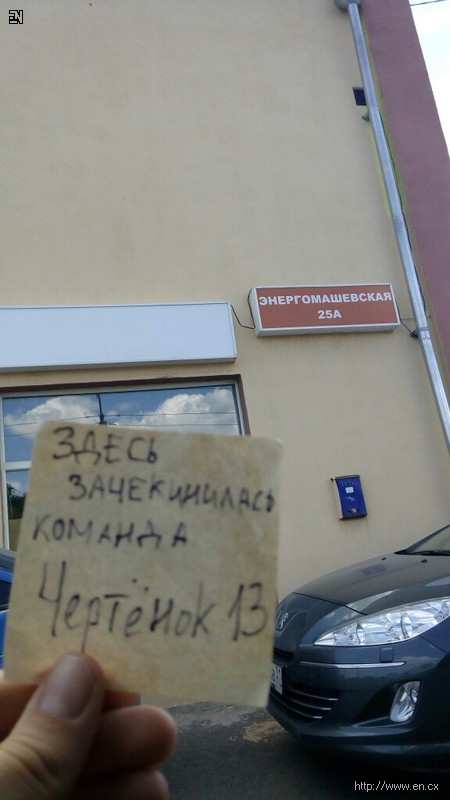 EN
ЭНЕРГОМАШЕВСКАЯ
25А
ЗДЕСЬ
ЗАЧЕКИНИЛАСЬ
КОМАНДА
Чертёнок 13
http://www.en.cx